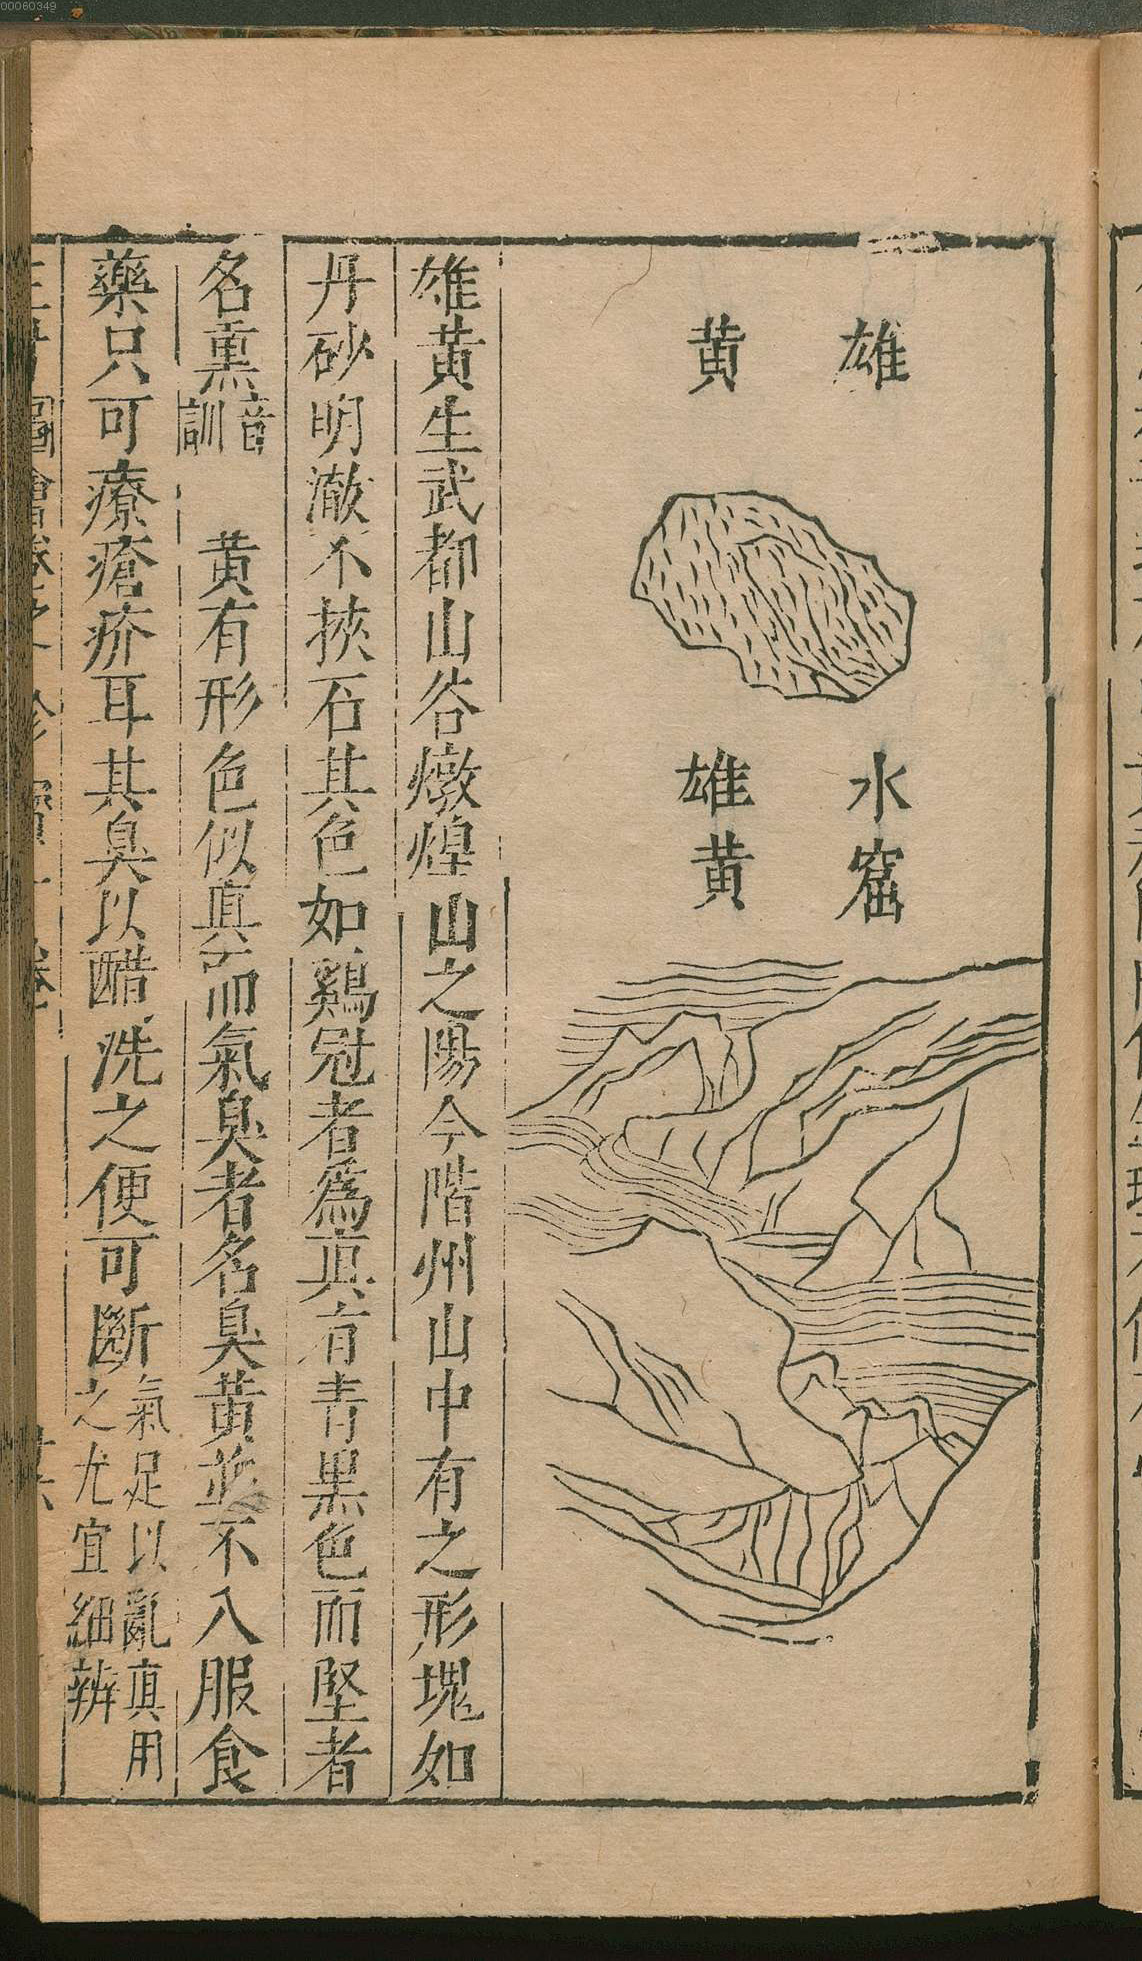 00060349
雄黄
水窟雄黄
雄黄生武都山谷燉煌山之陽今階州山中有之形塊如
丹砂明澈不挾石其色如鷄冠者爲真有青黑色而堅者
名熏音訓 黄有形色似真而氣臭者名臭黄並不入服食
藥只可療瘡疥耳其臭以醋洗之便可斷氣足以亂真用
之尤宜細辨